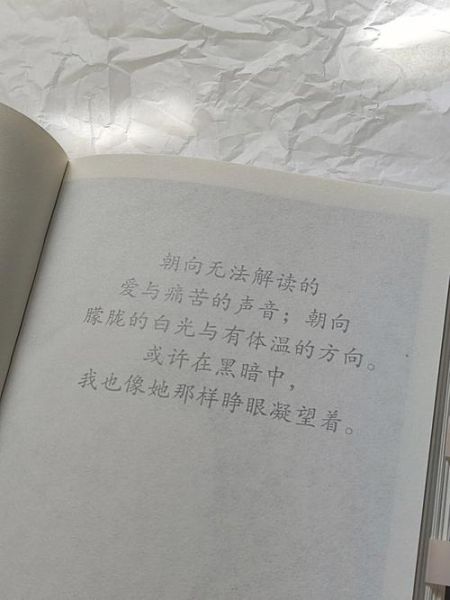 朝向无法解读的
爱与痛苦的声音；朝向
朦胧的白光与有体温的方向。
或许在黑暗中，
我也像她那样睁眼凝望着。